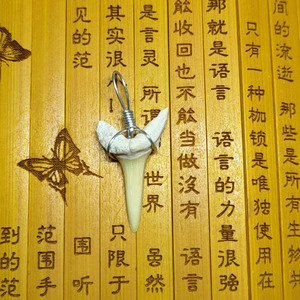 間的流逝 那些是所有生物
只有一种枷锁是唯独使用在
那就是語言 語言的力量很强
能收回也不能當做沒有 語言
是言灵 所謂 世界 雖然
其实很 只限于
见的范 围 听
范围手
到的范